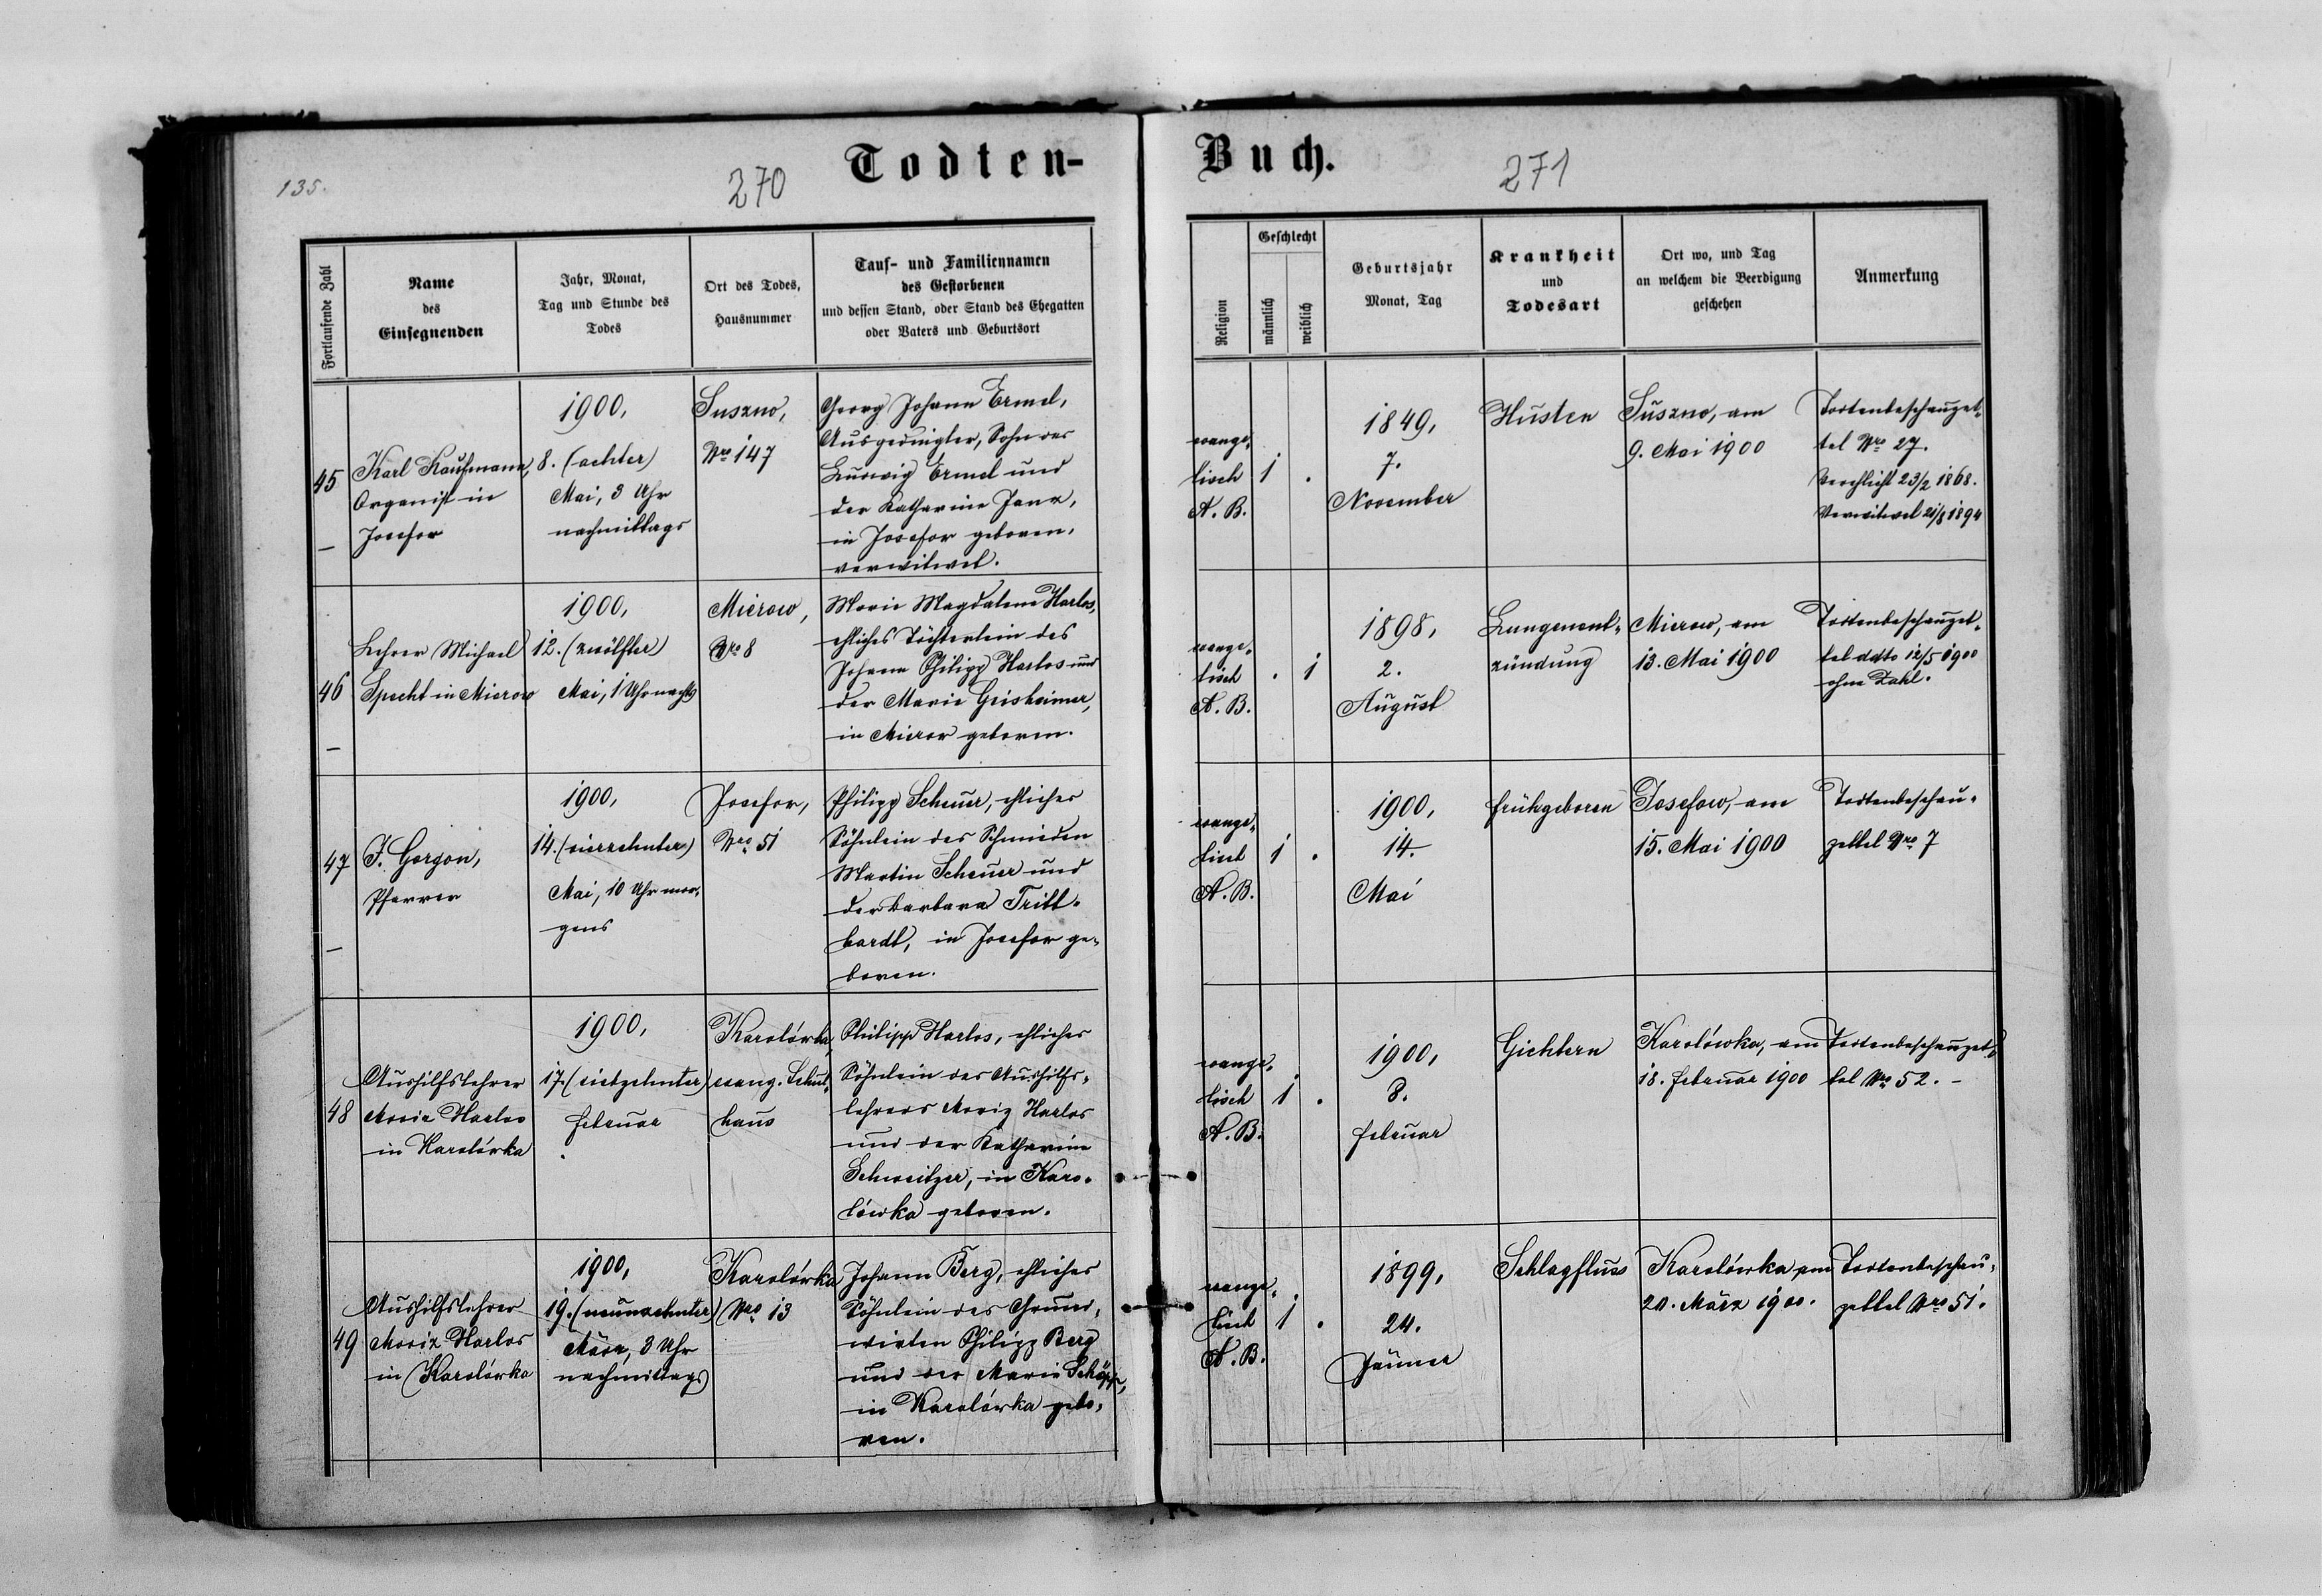 135.
270
Todten-
Buch.
271
Fortlaufende Zahl
Name
des
Einsegnenden
Jahr, Monat,
Tag und Stunde des
Todes
Ort des Todes,
Hausnummer
Tauf- und Familiennamen
des Gestorbenen
und dessen Stand, oder Stand des Ehegatten
oder Vaters und Geburtsort
Religion
Geschlecht
männlich
weiblich
Geburtsjahr
Monat, Tag
Krankheit
und
Todesart
Ort wo, und Tag
an welchem die Beerdigung
geschehen
Anmerkung
45
Karl Kaufmann,
Organist in
Josefow
1900,
8. (achter)
Mai, 3 Uhr
nachmittags
Suszno,
Nro 147
Georg Johann Ermel,
Ausgedingter, Sohn des
Ludwig Ermel und
der Katharine Janz,
in Josefow geboren,
verwitwet.
evange-
lisch
A. B.
1
.
1849,
7.
November
Husten
Suszno, am
9. Mai 1900
Todtenbeschauzet-
tel Nro 27.
Verehlicht 23/2 1868.
Verwitwet 21/8 1894
46
Lehrer Michael
Specht in Mierow
1900,
12. (zwölfter)
Mai, 1 Uhr nachts
Mierow,
Nro 8
Marie Magdalena Harlos,
ehliches Töchterlein des
Johann Philipp Harlos und
der Marie Grisheimer,
in Mierow geboren.
evange-
lisch
A. B.
.
1
1898,
2.
August
Lungenent-
zündung
Mierow, am
13. Mai 1900
Todtenbeschauzet-
tel ddto 12/5 1900
ohne Zahl.
47
F. Gorgon,
Pfarrer
1900,
14. (vierzehnter)
Mai, 10 Uhr mor-
gens
Josefow,
Nro 51
Philipp Scheuer, ehliches
Söhnlein des Schmieden
Martin Scheuer und
der Barbara Tritt-
hardt, in Josefow ge-
boren.
evange-
lisch
A. B.
1
.
1900,
14.
Mai
frühgeboren
Josefow, am
15. Mai 1900
Todtenbeschau-
zettel Nro 7
48
Aushilfslehrer
Moriz Harlos
in Karolówka
1900,
17. (siebzehnter)
Februar
Karolówka,
evang. Schul-
haus
Philipp Harlos, ehliches
Söhnlein des Aushilfs-
lehrers Moriz Harlos
und der Katharine
Schweitzer, in Karo-
lówka geboren.
evange-
lisch
A. B.
1
.
1900,
8.
Februar
Gichtern
Karolówka, am
18. Februar 1900
Todtenbeschauzet-
tel Nro 52. -
49
Aushilfslehrer
Moriz Harlos
in Karolówka
1900,
19. (neunzehnter)
März, 3 Uhr
nachmittags
Karolówka
Nro 13
Johann Berg, ehliches
Söhnlein des Grund-
wirten Philipp Berg
und der Marie Schöpp,
in Karolówka gebo-
ren.
evange-
lisch
A. B.
1
.
1899,
24.
Jänner
Schlagfluss
Karolówka am
20. März 1900.
Todtenbeschau-
zettel Nro 51.